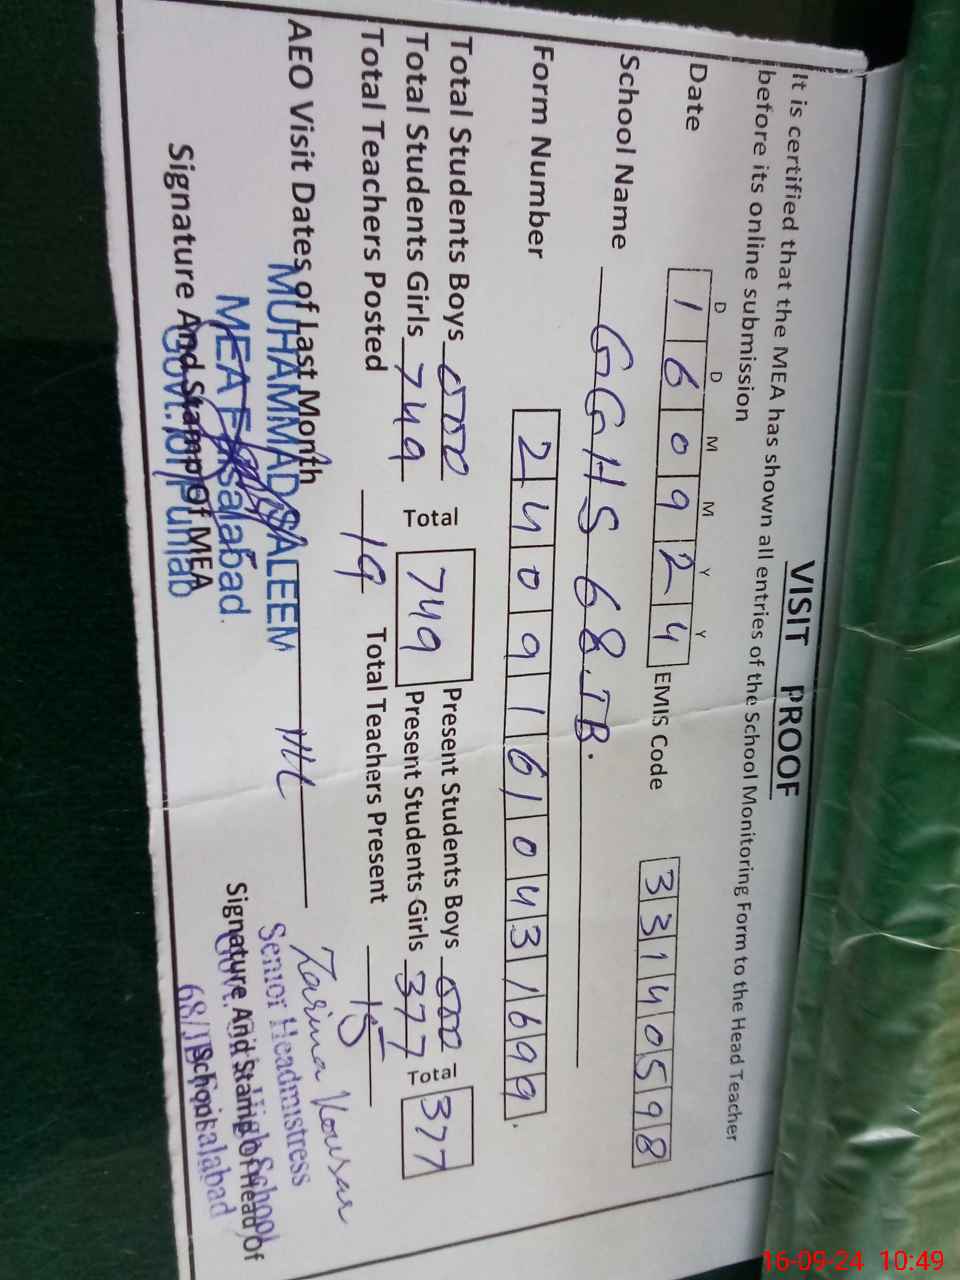 VISIT PROOF
It is certified that the MEA has shown all entries of the School Monitoring Form to the Head Teacher
before its online submission
D D M M Y Y
Date 1 6 0 9 2 4 EMIS Code 3 3 1 4 0 5 9 8
School Name GGHS 68.JB.
Form Number 2 4 0 9 1 6 1 0 4 3 1 6 9 9
Total Students Boys 000 Present Students Boys 000
Total 749 Total 377
Total Students Girls 749 Present Students Girls 377
Total Teachers Posted 19 Total Teachers Present 15
AEO Visit Dates of Last Month Nil
MUHAMMAD SALEEM
MEA Faisalabad.
Govt. of Punjab
Signature And Stamp of MEA
Zarina Kousar
Senior Headmistress
Govt. High School
68/JB Faisalabad
Signature And Stamp of Head of
School
16-09-24 10:49